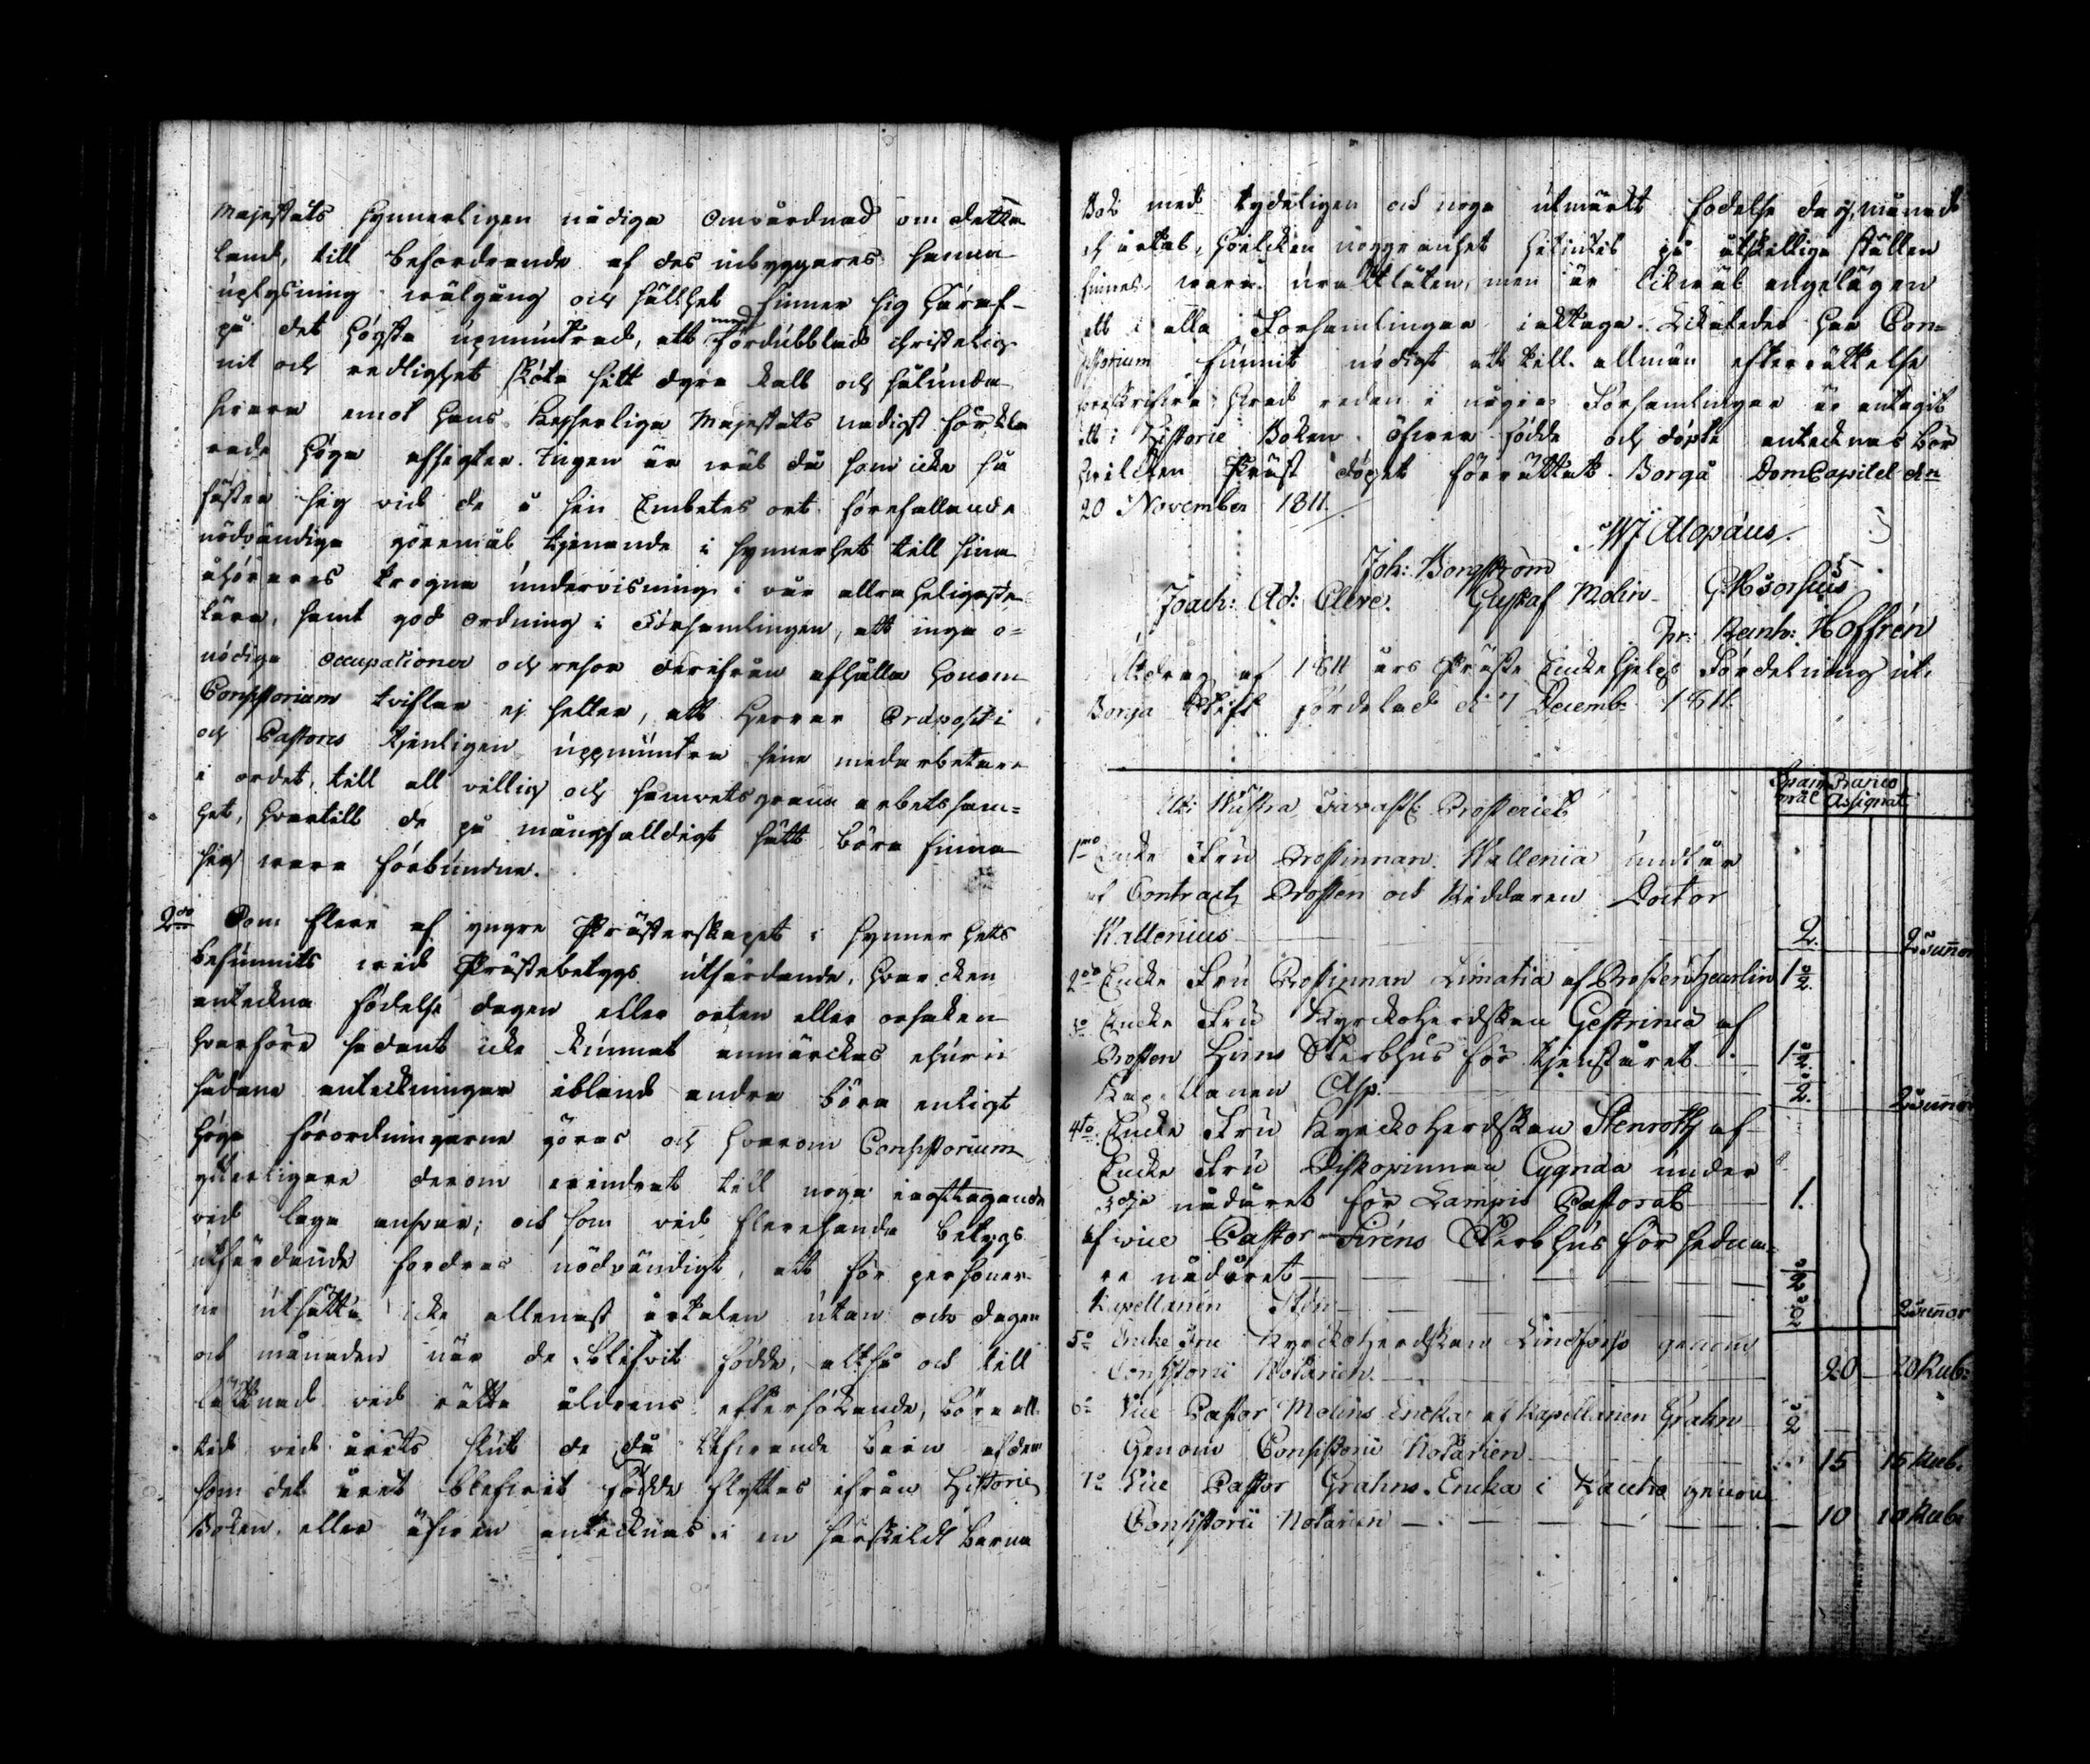 Majestäts synnerligen nådiga omvårdnad om detta
land, till befordrande af des inbyggares sanna
uplysning wälgång och sällhet finner sig häraf
på det högsta upmuntrad, att med fördubblad christelig
nit och redlighet sköta sitt dyra kall och sålunda
svara emot Hans Kejserliga Majestäts nådigst förkla
rade höga afsigter. Ingen är wäl då som icke så
fäster sig vid de å sin Embetes ort förefallande
nödvändiga göremål tjenande i synnerhet till sina
åhörares trogna undervisning i vår allra heligaste
lära, samt god ordning i Församlingen, att inga o=
nödiga occupationer och resor derifrån afhålla honom
Consistorium tviflar ej heller, att Herrar Præpositi
och Pastores tjenligen uppmuntra sina medarbetare
i ordet, till all villig och samvetsgrann arbetsam=
het, hvartill de på mångfalldigt sätt böra finna
sig wara förbundne.
2do Som flere af yngre Prästerskapet i synnerhets
befunnits wid Prästebetygs utfärdande, hvarcken
anteckna födelse dagen eller orten eller orsaken
hvarföre sådant icke kunnat anmärckas ehuru
sådane anteckningar ibland andra böra enligt
höga förordningarne göras och hvarom Consistorium
ytterligare derom erindrat till noga iagttagande
vid laga answar; och som vid flerehanda betygs
utfärdande fordras nödvändigt, att för personer
ne utsätta icke allenast årtalen utan och dagen
och månaden när de blifvit födde, altså och till
lättnad vid rätta ålderns eftersökande, böra all
tid vid årets slut de då lefvande barn af dem
som det året blefvit födde flyttas ifrån Historie
Boken eller äfven antecknas i en särskildt Barna
Bok med tydeligen och noga utmärkt födelse dag, månad
och årtal, hvilcken noggranhet hitintil på åtskilliga ställen
finnes wara uraktlåten, men är likwäl angelägen
att i alla Församlingar iakttaga. Likaledes har Con=
sistorium funnit nödigt att till allmän efterrättelse
föreskrifva hvad redan i några Församlingar är antagit
att i Historie Boken öfver födde och döpte antecknas bör
hvilcken Präst döpet förrättat. Borgå DomCapitel den
20 November 1811.
M J Alopæus
Joh: Borgström
Joach: Ad: Cleve. Gustaf Molin
Reinh: Hoffrén
Utdrag af 1811 års Präste Enckehjelps Fördelning uti
Borgå Stift fördelad d. 7 Decemb: 1811.
Spanmål Banco Assignat
Uti Östra Tavastl: Prosteriet
1mo Encke Fru Prostinnan Wallenia undtår
af Contracts Prosten och Riddaren Doctor
Wallenius 2. 2 Tunnor
2do Encke Fru Prostinnan Limatia af Prosten Heurlin 1 1/2.
3o Encke Fru Kyrckoherdskan Gestrinia af
Prosten Hums Sterbhus för tjenståret 1 1/2.
Kapellanen Asp. 1/2. 2 Tunnor
4to Encke Fru Kyrckoherdskan Stenroth af
Encke Fru Biskopinnan Cygnæa under
3dje nådåret för Lampis Pastorat 1.
af vice Pastor Siréns Sterbhus för sedna=
re nådåret 1/2
Kapellanen Stén 1/2 2 Tunnor
5o Encke Fru Kyrckoherdskan Lindfors genom
Consistorii Notarien 20 20 Rub:
6o Vice Pastor Molins Encka af Kapellanen Grahn 1/2
Genom Consistorii Notarien 15 15 Rub.
7o Vice Pastor Grahns Encka i genom
Consistorii Notarien 10 10 Rub.